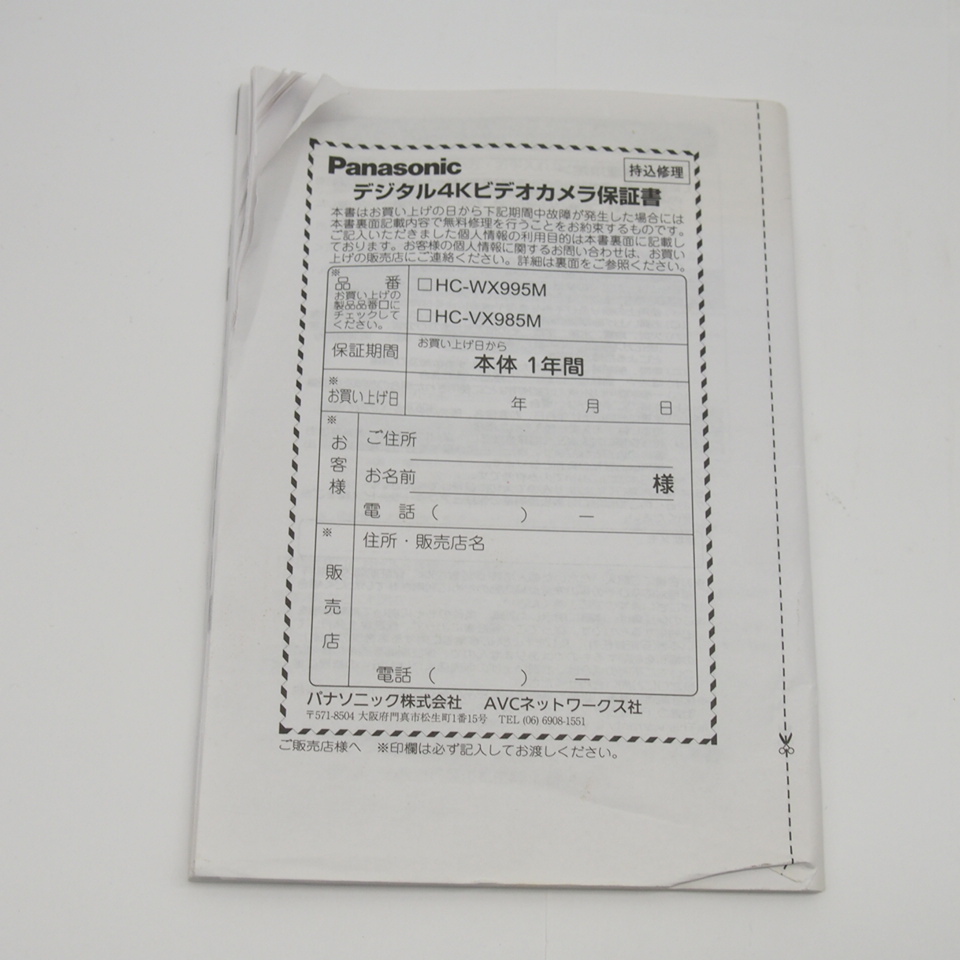 Panasonic
持込修理
デジタル4Kビデオカメラ保証書
本書はお買い上げの日から下記期間中故障が発生した場合には
本書裏面記載内容で無料修理を行うことをお約束するものです。
ご記入いただきました個人情報の利用目的は本書裏面に記載し
ております。お客様の個人情報に関するお問い合わせは、お買い
上げの販売店にご連絡ください。詳細は裏面をご参照ください。
※
品 番
お買い上げの
製品品番口に
チェックして
ください。
□HC-WX995M
□HC-VX985M
保証期間
お買い上げ日から
本体 1年間
※
お買い上げ日
年 月 日
※
お客様
ご住所
お名前 様
電 話 ( ) ―
※
販売店
住所・販売店名
電話 ( ) ―
パナソニック株式会社 AVCネットワークス社
〒571-8504 大阪府門真市松生町1番15号 TEL (06) 6908-1551
ご販売店様へ ※印欄は必ず記入してお渡しください。